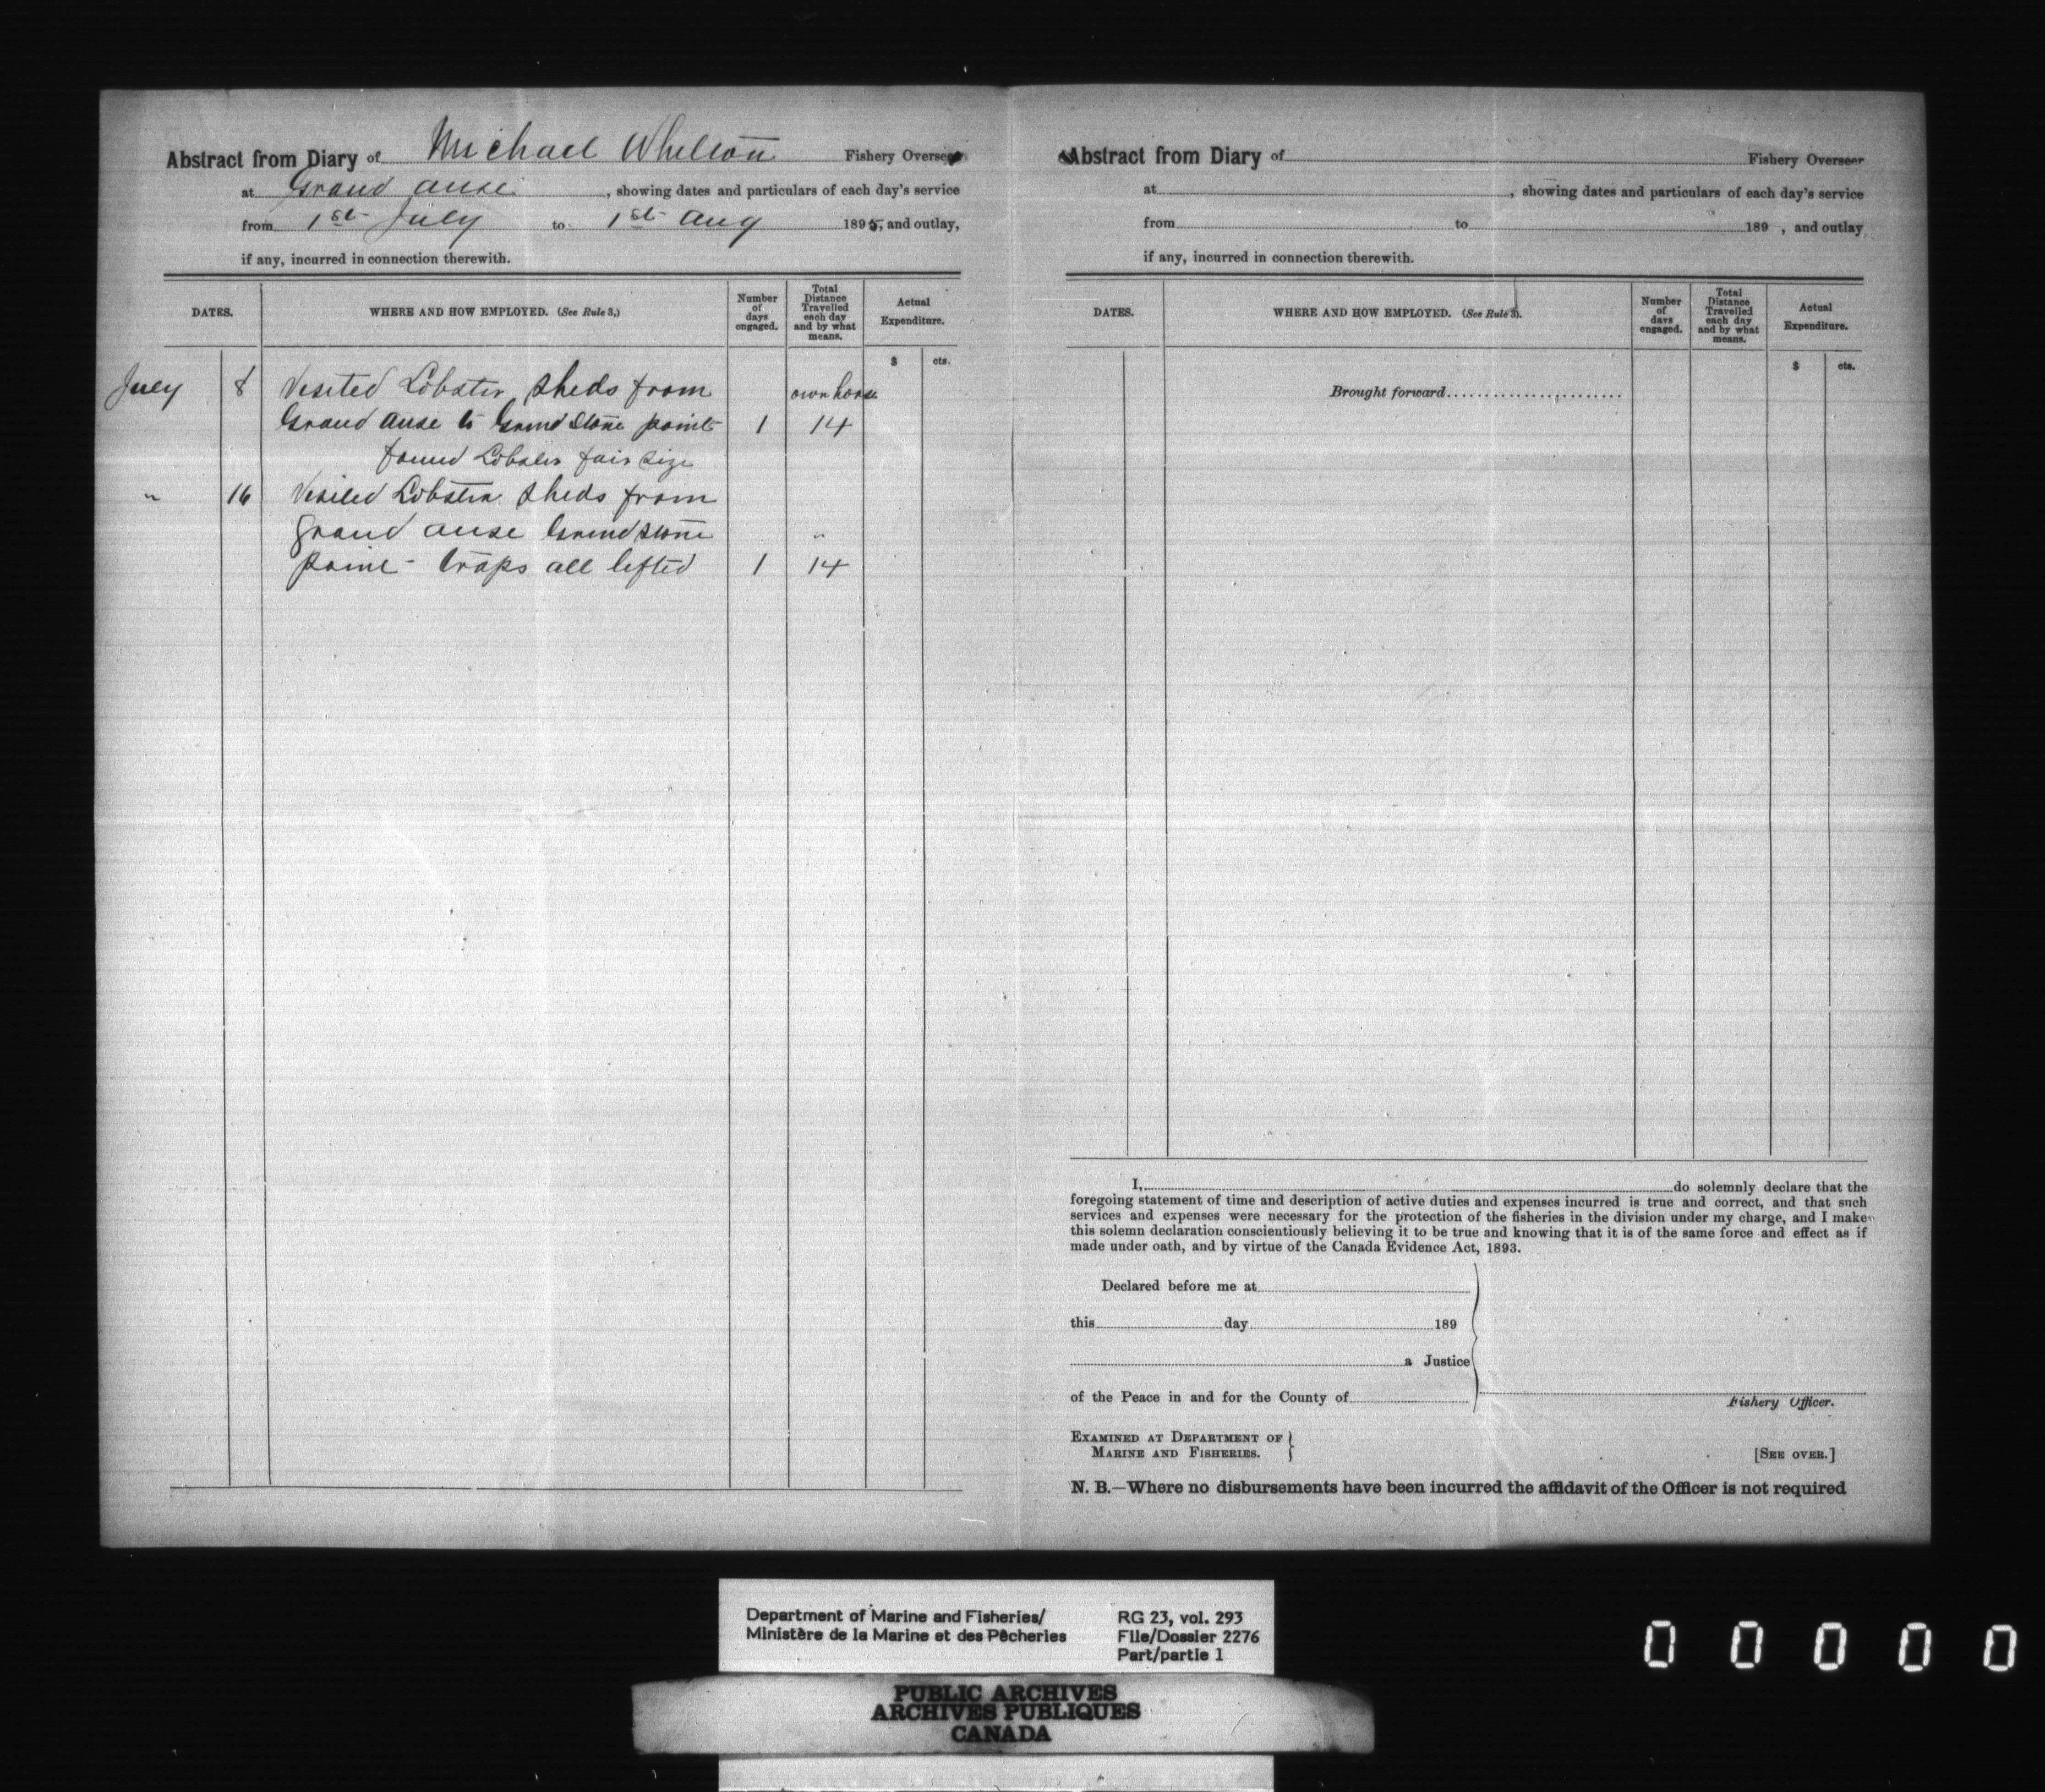 Abstract from Diary of Michael Whelton Fishery Overseer
at Grand anse, showing dates and particulars of each day's service
from 1st July to 1st Aug 1895, and outlay,
if any, incurred in connection therewith.
DATES. WHERE AND HOW EMPLOYED. (See Rule 3,) Number of days engaged. Total Distance Travelled each day and by what means. Actual Expenditure.
$ cts.
July 8 Visited Lobster sheds from own horse
Grand anse to Grind Stone point 1 14
found Lobster fair size
" 16 Visited Lobster sheds from
grand anse Grindstone "
point - traps all lifted 1 14
Abstract from Diary of Fishery Overseer
at , showing dates and particulars of each day's service
from to 189 , and outlay
if any, incurred in connection therewith.
DATES. WHERE AND HOW EMPLOYED. (See Rule 3). Number of days engaged. Total Distance Travelled each day and by what means. Actual Expenditure.
$ cts.
Brought forward
I, do solemnly declare that the
foregoing statement of time and description of active duties and expenses incurred is true and correct, and that such
services and expenses were necessary for the protection of the fisheries in the division under my charge, and I make
this solemn declaration conscientiously believing it to be true and knowing that it is of the same force and effect as if
made under oath, and by virtue of the Canada Evidence Act, 1893.
Declared before me at
this day 189
a Justice
of the Peace in and for the County of
Fishery Officer.
EXAMINED AT DEPARTMENT OF
MARINE AND FISHERIES.
[SEE OVER.]
N. B.—Where no disbursements have been incurred the affidavit of the Officer is not required
Department of Marine and Fisheries/
Ministère de la Marine et des Pêcheries
RG 23, vol. 293
File/Dossier 2276
Part/partie 1
PUBLIC ARCHIVES
ARCHIVES PUBLIQUES
CANADA
0 0 0 0 0